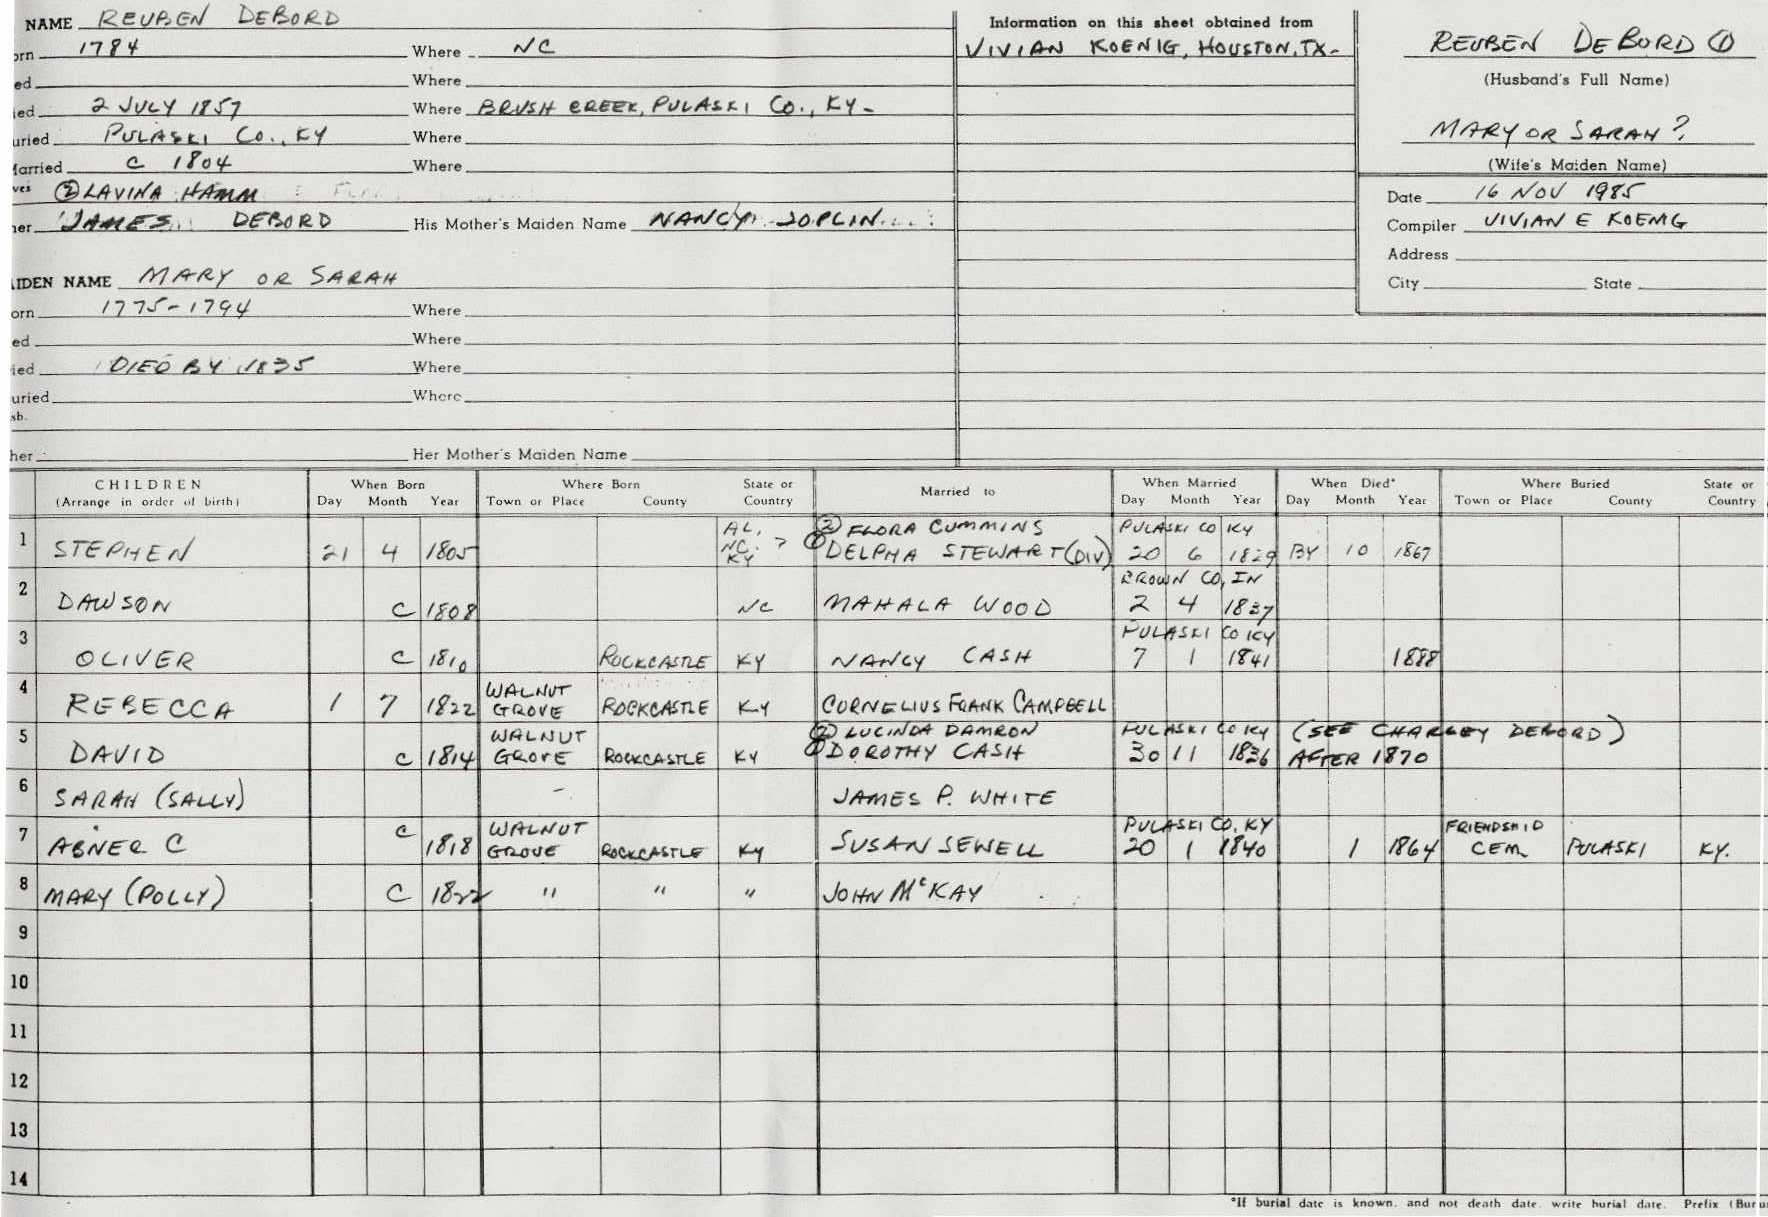 NAME REUBEN DEBORD
orn 1784 Where NC
ed Where
ied 2 JULY 1857 Where BRUSH CREEK, PULASKI CO., KY-
uried PULASKI CO., KY Where
Married C 1804 Where
ves ② LAVINA HAMM
her JAMES DEBORD His Mother's Maiden Name NANCY JOPLIN
Information on this sheet obtained from
VIVIAN KOENIG, HOUSTON, TX-
REUBEN DEBORD ①
(Husband's Full Name)
MARY OR SARAH?
(Wife's Maiden Name)
Date 16 NOV 1985
Compiler VIVIAN E KOENIG
Address
City State
AIDEN NAME MARY OR SARAH
orn 1775-1794 Where
ed Where
ied DIED BY 1835 Where
uried Where
sb.
her Her Mother's Maiden Name
CHILDREN When Born Where Born State or Married to When Married When Died* Where Buried State or
(Arrange in order of birth) Day Month Year Town or Place County Country Day Month Year Day Month Year Town or Place County Country
AL, ② FLORA CUMMINS PULASKI CO KY
1 STEPHEN 21 4 1805 NC ? ① DELPHA STEWART (DIV) 20 6 1829 BY 10 1867
KY
BROWN CO, IN
2 DAWSON C 1808 NC MAHALA WOOD 2 4 1837
PULASKI CO KY
3 OLIVER C 1810 ROCKCASTLE KY NANCY CASH 7 1 1841 1888
4 REBECCA 1 7 1822 WALNUT GROVE ROCKCASTLE KY CORNELIUS FRANK CAMPBELL
② LUCINDA DAMRON PULASKI CO KY (SEE CHARLEY DEBORD)
5 DAVID C 1814 WALNUT GROVE ROCKCASTLE KY ① DOROTHY CASH 30 11 1836 AFTER 1870
6 SARAH (SALLY) - JAMES P. WHITE
PULASKI CO, KY FRIENDSHIP
7 ABNER C C 1818 WALNUT GROVE ROCKCASTLE KY SUSAN SEWELL 20 1 1840 1 1864 CEM. PULASKI KY.
8 MARY (POLLY) C 1822 " " " JOHN McKAY
9
10
11
12
13
14
*If burial date is known, and not death date, write burial date. Prefix (Buru